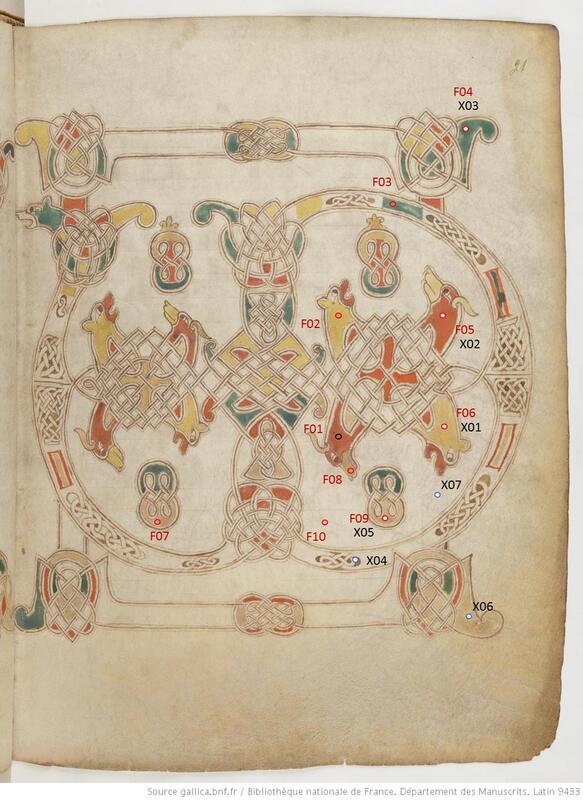 21
F04
X03
F03
F02
F05
X02
F06
F01
X01
F08
X07
F09
F07
F10
X05
X04
X06
Source gallica.bnf.fr / Bibliothèque nationale de France. Département des Manuscrits. Latin 9433